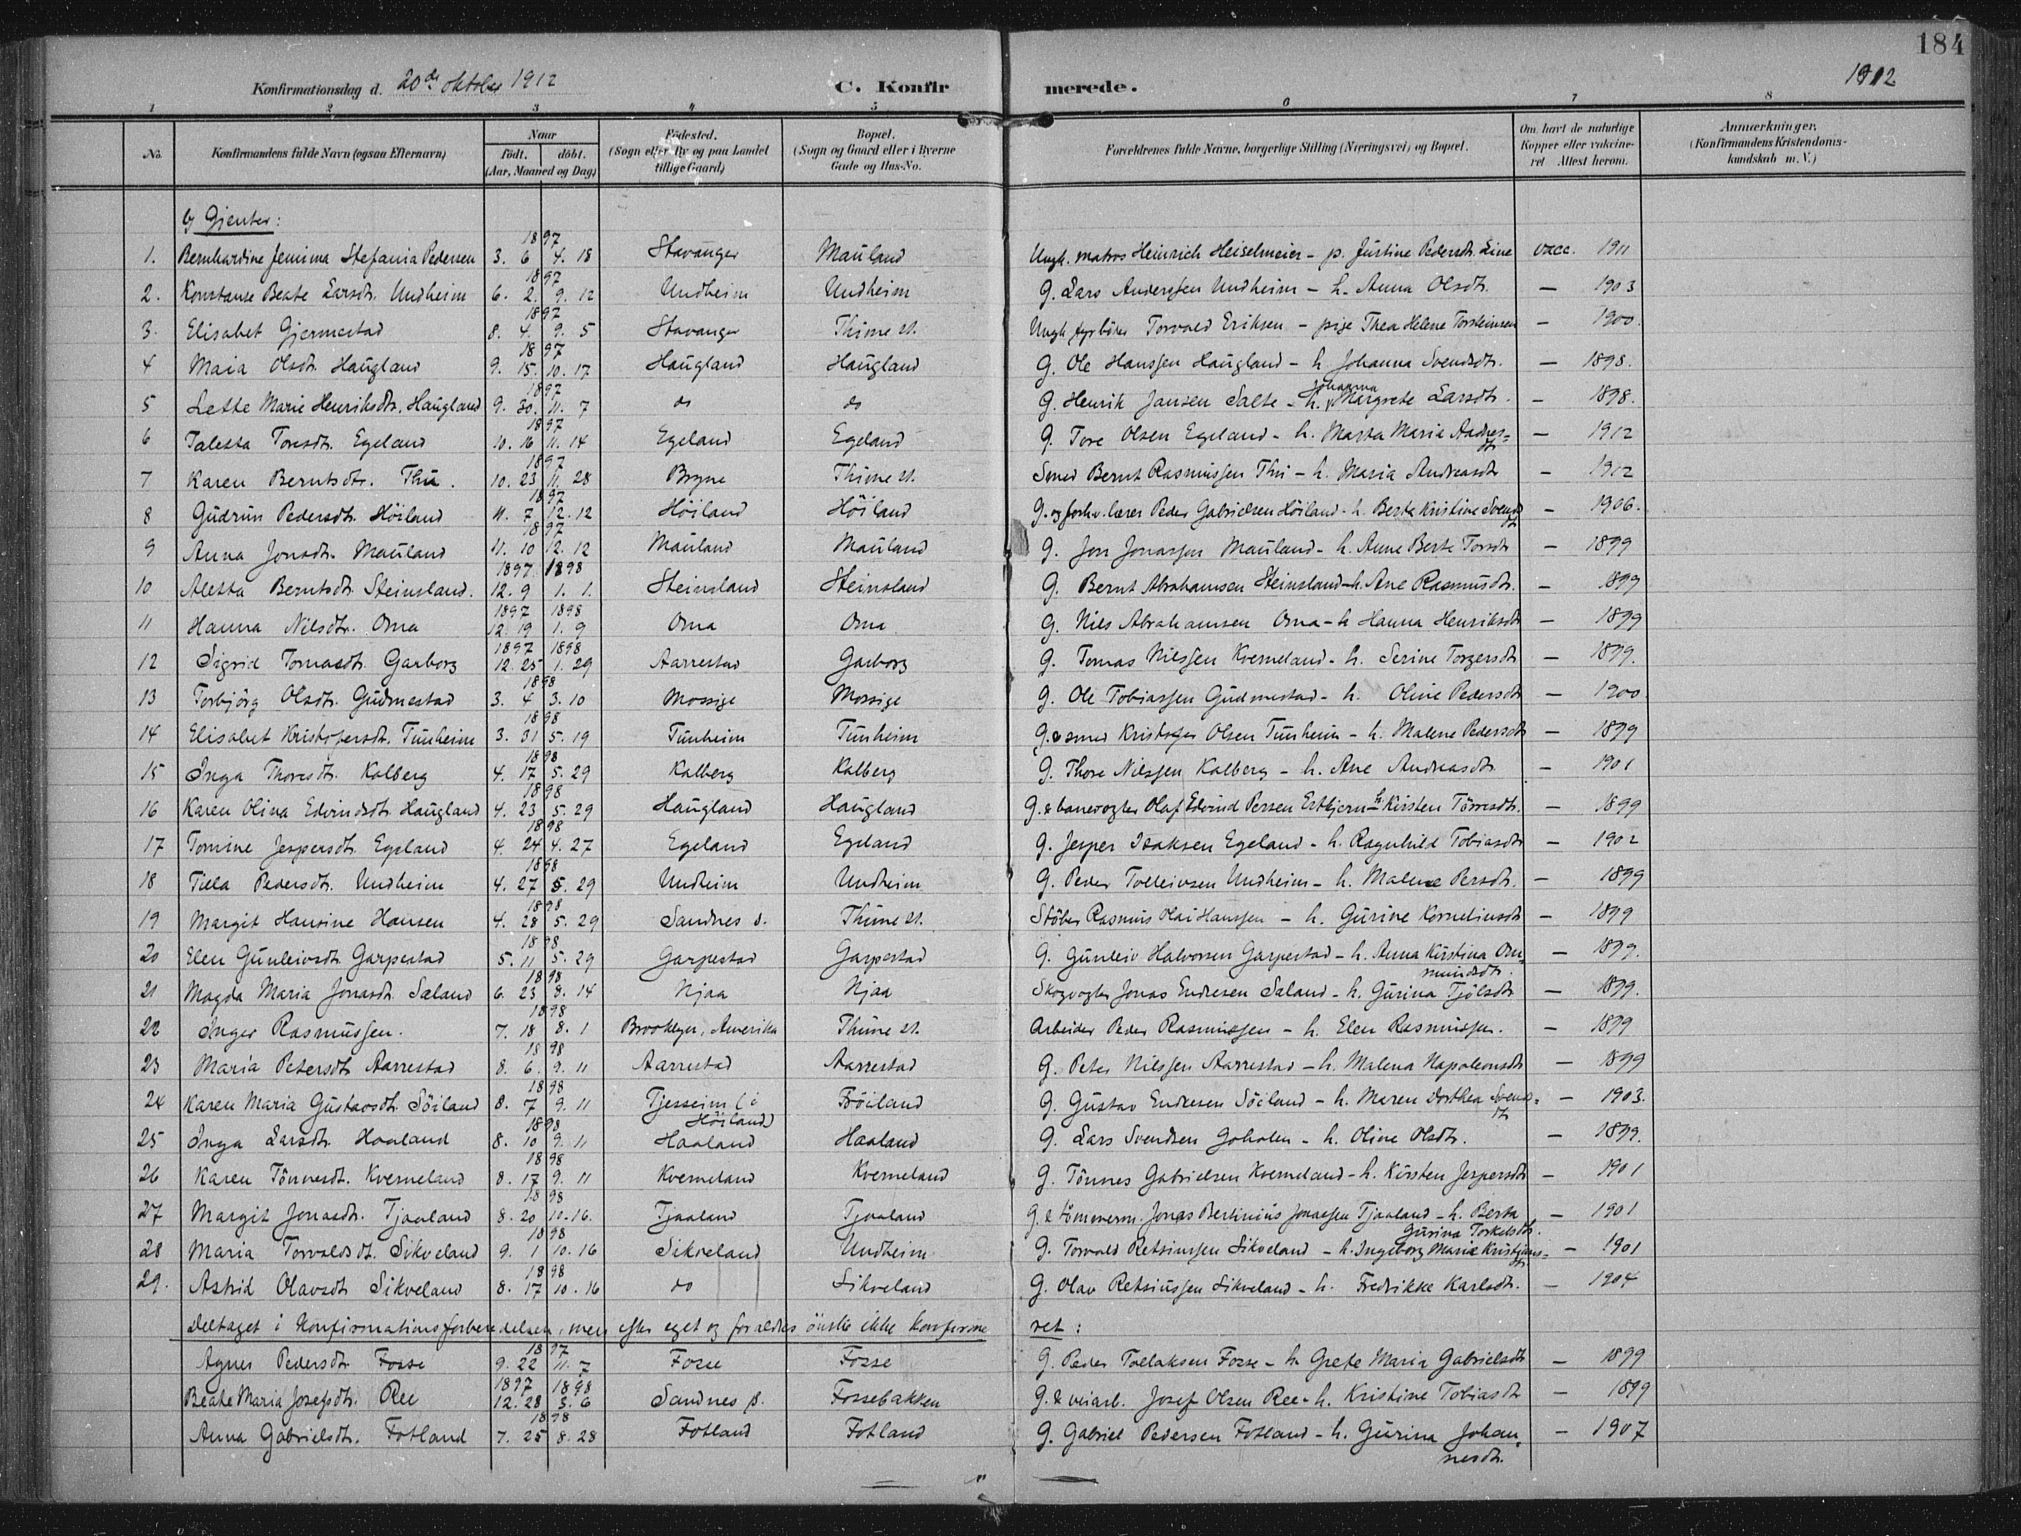 184
Konfirmationsdag d. 20de oktober 1912 C. Konfirmerede. 1912
1 2 3 4 5 6 7 8
No. Konfirmandens fulde Navn (ogsaa Efternavn) Naar født. døbt. (Aar, Maaned og Dag) Fødested. (Sogn eller By og paa Landet tillige Gaard) Bopæl. (Sogn og Gaard eller i Byerne Gade og Hus-No. Forældrenes fulde Navne, borgerlige Stilling (Næringsvei) og Bopæl. Om havt de naturlige Kopper eller vakcineret Attest herom. Anmærkninger. (Konfirmandens Kristendomskundskab m. V.)
b) Gjenter:
1. Bernhardine Jemima Stefania Pedersen 1897 3. 6 4. 18 Stavanger Mauland Ungk. matros Heinrich Heiselmeier - p. Justine Pedersdt. Line vacc. 1911
2. Konstanse Beate Larsdt. Undheim 1897 6. 2. 9. 12 Undheim Undheim G. Lars Anderssen Undheim - h. Anna Olsdt. — 1903
3. Elisabet Gjermestad 1897 8. 4. 9. 5 Stavanger Thime st. Ungk. fyrbøter Torvald Eriksen - pige Thea Helene Torsteinsen — 1900.
4 Maia Olsdt. Haugland 1897 9. 15. 10. 17 Haugland Haugland G. Ole Hanssen Haugland - h. Johanna Svendsdt. — 1898.
5 Lette Marie Henriksdtr. Haugland 1897 9. 30. 11. 7 do do G. Henrik Jansen Salte - h. Johanna Margrete Larsdt. — 1898.
6 Taletta Toresdt. Egeland 1897 10. 16 11. 14 Egeland Egeland G. Tore Olsen Egeland - h. Marta Maria Aadnesdt. — 1912
7 Karen Berntsdtr. Thu. 1897 10. 23 11. 28 Bryne Thime st. Smed Bernt Rasmussen Thu - h. Maria Andreasdt. — 1912
8 Gudrun Pedersdt. Höiland 1897 11. 7 12. 12 Höiland Höiland G. og forhv. lærer Peder Gabrielsen Höiland - h. Berte Kristine Svendsdt. — 1906.
9 Anna Jonsdt. Mauland 1897 11. 10 12. 12 Mauland Mauland G. Jon Jonassen Mauland - h. Anne Berte Torsdt. — 1899
10 Aletta Berntsdt. Steinsland. 1897 1898 12. 9 1. 1. Steinsland Steinsland G. Bernt Abrahamsen Steinsland - h. Ane Rasmusdt. — 1899
11 Hanna Nilsdtr. Oma 1897 1898 12. 19 1. 9 Oma Oma G. Nils Abrahamsen Oma - h. Hanna Henriksdt. — 1899
12 Sigrid Tomasdt. Garborg 1897 1898 12. 25 1. 29 Aarrestad Garborg G. Tomas Nilssen Kverneland - h. Serine Torgersdt. — 1899.
13 Torbjörg Olsdt. Gudmestad 1898 3. 4 3. 10 Mossige Mossige G. Ole Tobiassen Gudmestad - h. Oline Pedersdt. — 1900
14 Elisabet Kristofersdt. Tunheim 1898 3. 31 5. 19 Tunheim Tunheim G. & smed Kristofer Olsen Tunheim - h. Malene Pedersdt. — 1899
15 Inga Thoresdt. Kalberg 1898 4. 17 5. 29 Kalberg Kalberg G. Thore Nilssen Kalberg - h. Ane Andreasdt. — 1901
16 Karen Olina Edvindsdt. Haugland 1898 4. 23 5. 29 Haugland Haugland G. & banevogter Olaf Edvind Persen Estbjern - h. Kirsten Törresdt. — 1899
17 Tomine Jespersdt. Egeland 1898 4. 24 4. 27 Egeland Egeland G. Jesper Isaksen Egeland - h. Ragnhild Tobiasdt. — 1902
18 Tilla Pedersdt. Undheim 1898 4. 27 5. 29 Undheim Undheim G. Peder Tolleivsen Undheim - h. Malene Persdt. — 1899
19 Margit Hansine Hansen 1898 4. 28 5. 29 Sandnes s. Thime st. Stöber Rasmus Olai Hanssen - h. Gurine Korneliusdt. — 1899
20 Elen Gunleivsdt. Garpestad 1898 5. 11 5. 29 Garpestad Garpestad G. Gunleiv Halvorsen Garpestad - h. Anna Kirstina Ommundsdt. — 1899.
21 Magda Maria Jonasdt. Sæland 1898 6. 23 8. 14 Njaa Njaa Skogvogter Jonas Endresen Sæland - h. Gurina Tjölsdt. — 1899.
22 Inger Rasmussen. 1898 7. 18 8. 1 Brooklyn, Amerika Thime st. Arbeider Peder Rasmussen - h. Elen Rasmussen. — 1899
23 Maria Petersdt. Aarrestad 1898 8. 6. 9. 11 Aarrestad Aarrestad G. Peter Nilssen Aarrestad - h. Malena Napoleonsdt. — 1899
24 Karen Maria Gustavsdt. Söiland 1898 8. 7 9. 11 Tjesseim (i Höiland) Söiland G. Gustav Endresen Söiland - h. Maren Dorthea Svendsdt. — 1903.
25 Inga Larsdt. Haaland 1898 8. 10 9. 11 Haaland Haaland G. Lars Svendsen Goholen - h. Oline Olsdt. — 1899.
26 Karen Tönnesdt. Kverneland 1898 8. 17 9. 11 Kverneland Kverneland G. Tönnes Gabrielsen Kverneland - h. Kirsten Jespersdt. — 1901
27 Margit Jonasdt. Tjaaland 1898 8. 20 10. 16. Tjaaland Tjaaland G. & tömmerm. Jonas Bertinius Jonassen Tjaaland - h. Berta Gurina Torkelsdt. — 1901
28 Maria Torvaldsdt. Sikveland 1898 9. 1 10. 16 Sikveland Undheim G. Torvald Retsiussen Sikveland - h. Ingeborg Maria Kristjansdt. — 1901
29. Astrid Olavsdt. Sikveland 1898 8. 17 10. 16 do Sikveland G. Olav Retsiussen Sikveland - h. Fredrikke Karlsdt. — 1904
Deltaget i konfirmationsforberedelsen, men efter eget og forældres önske ikke konfirmeret:
Agnes Pedersdt. Fosse 1897 9. 22 11. 7 Fosse Fosse G. Peder Tollaksen Fosse - h. Grete Maria Gabrielsdt. — 1899
Beate Maria Josefsdt. Ree 1897 1898 12. 28 3. 6 Sandnes s. Fossebakken G. & veiarb. Josef Olsen Ree - h. Kristine Tobiasdt. — 1899
Anna Gabrielsdt. Fotland 1898 7. 25 8. 28 Fotland Fotland G. Gabriel Pedersen Fotland - h. Gurina Johannesdt. — 1907